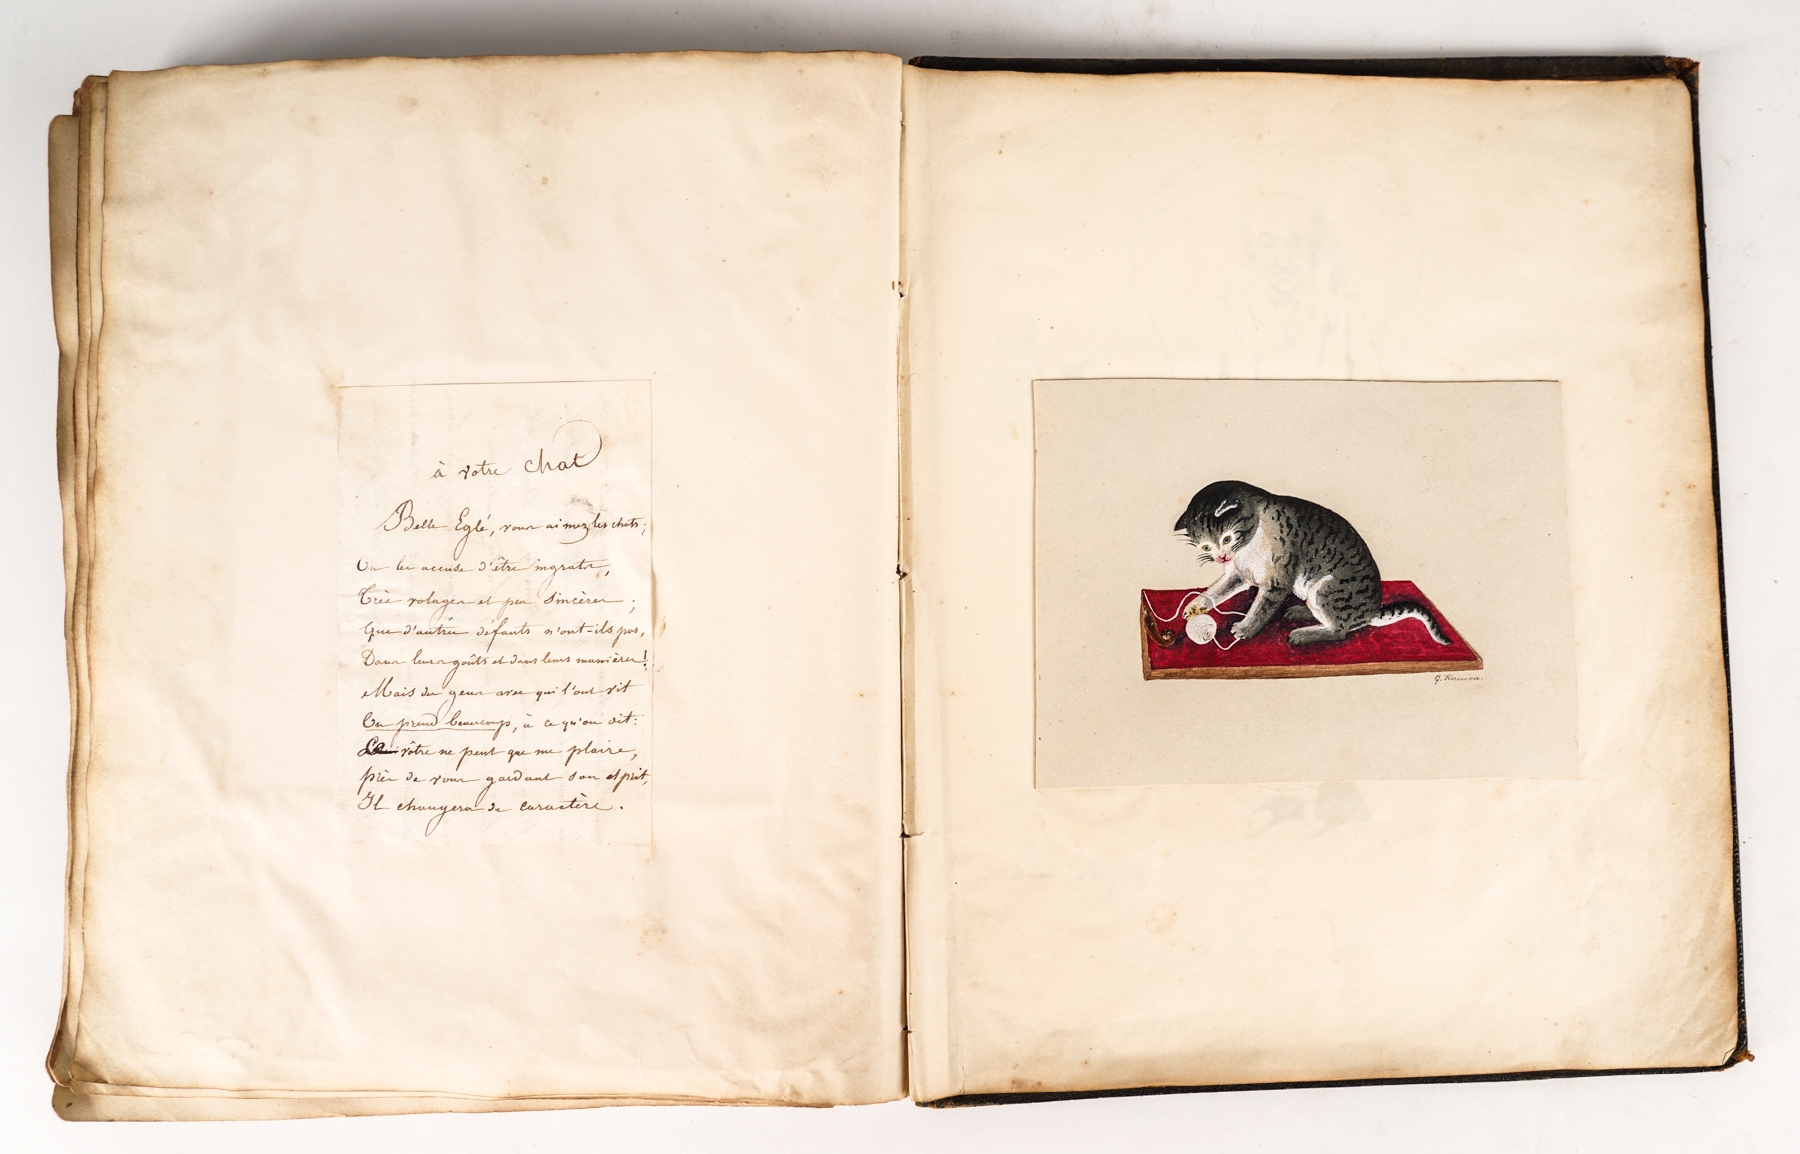 à votre chat
Belle Eglé, vous aimez les chats;
On les accuse d'être ingrats,
Très volages et peu sincères;
Que d'autres défauts n'ont-ils pas,
Dans leurs goûts et dans leurs manières!
Mais des gens avec qui l'on vit
On prend beaucoup, à ce qu'on dit:
Le vôtre ne peut que me plaire,
près de vous gardant son esprit,
Il changera de caractère.